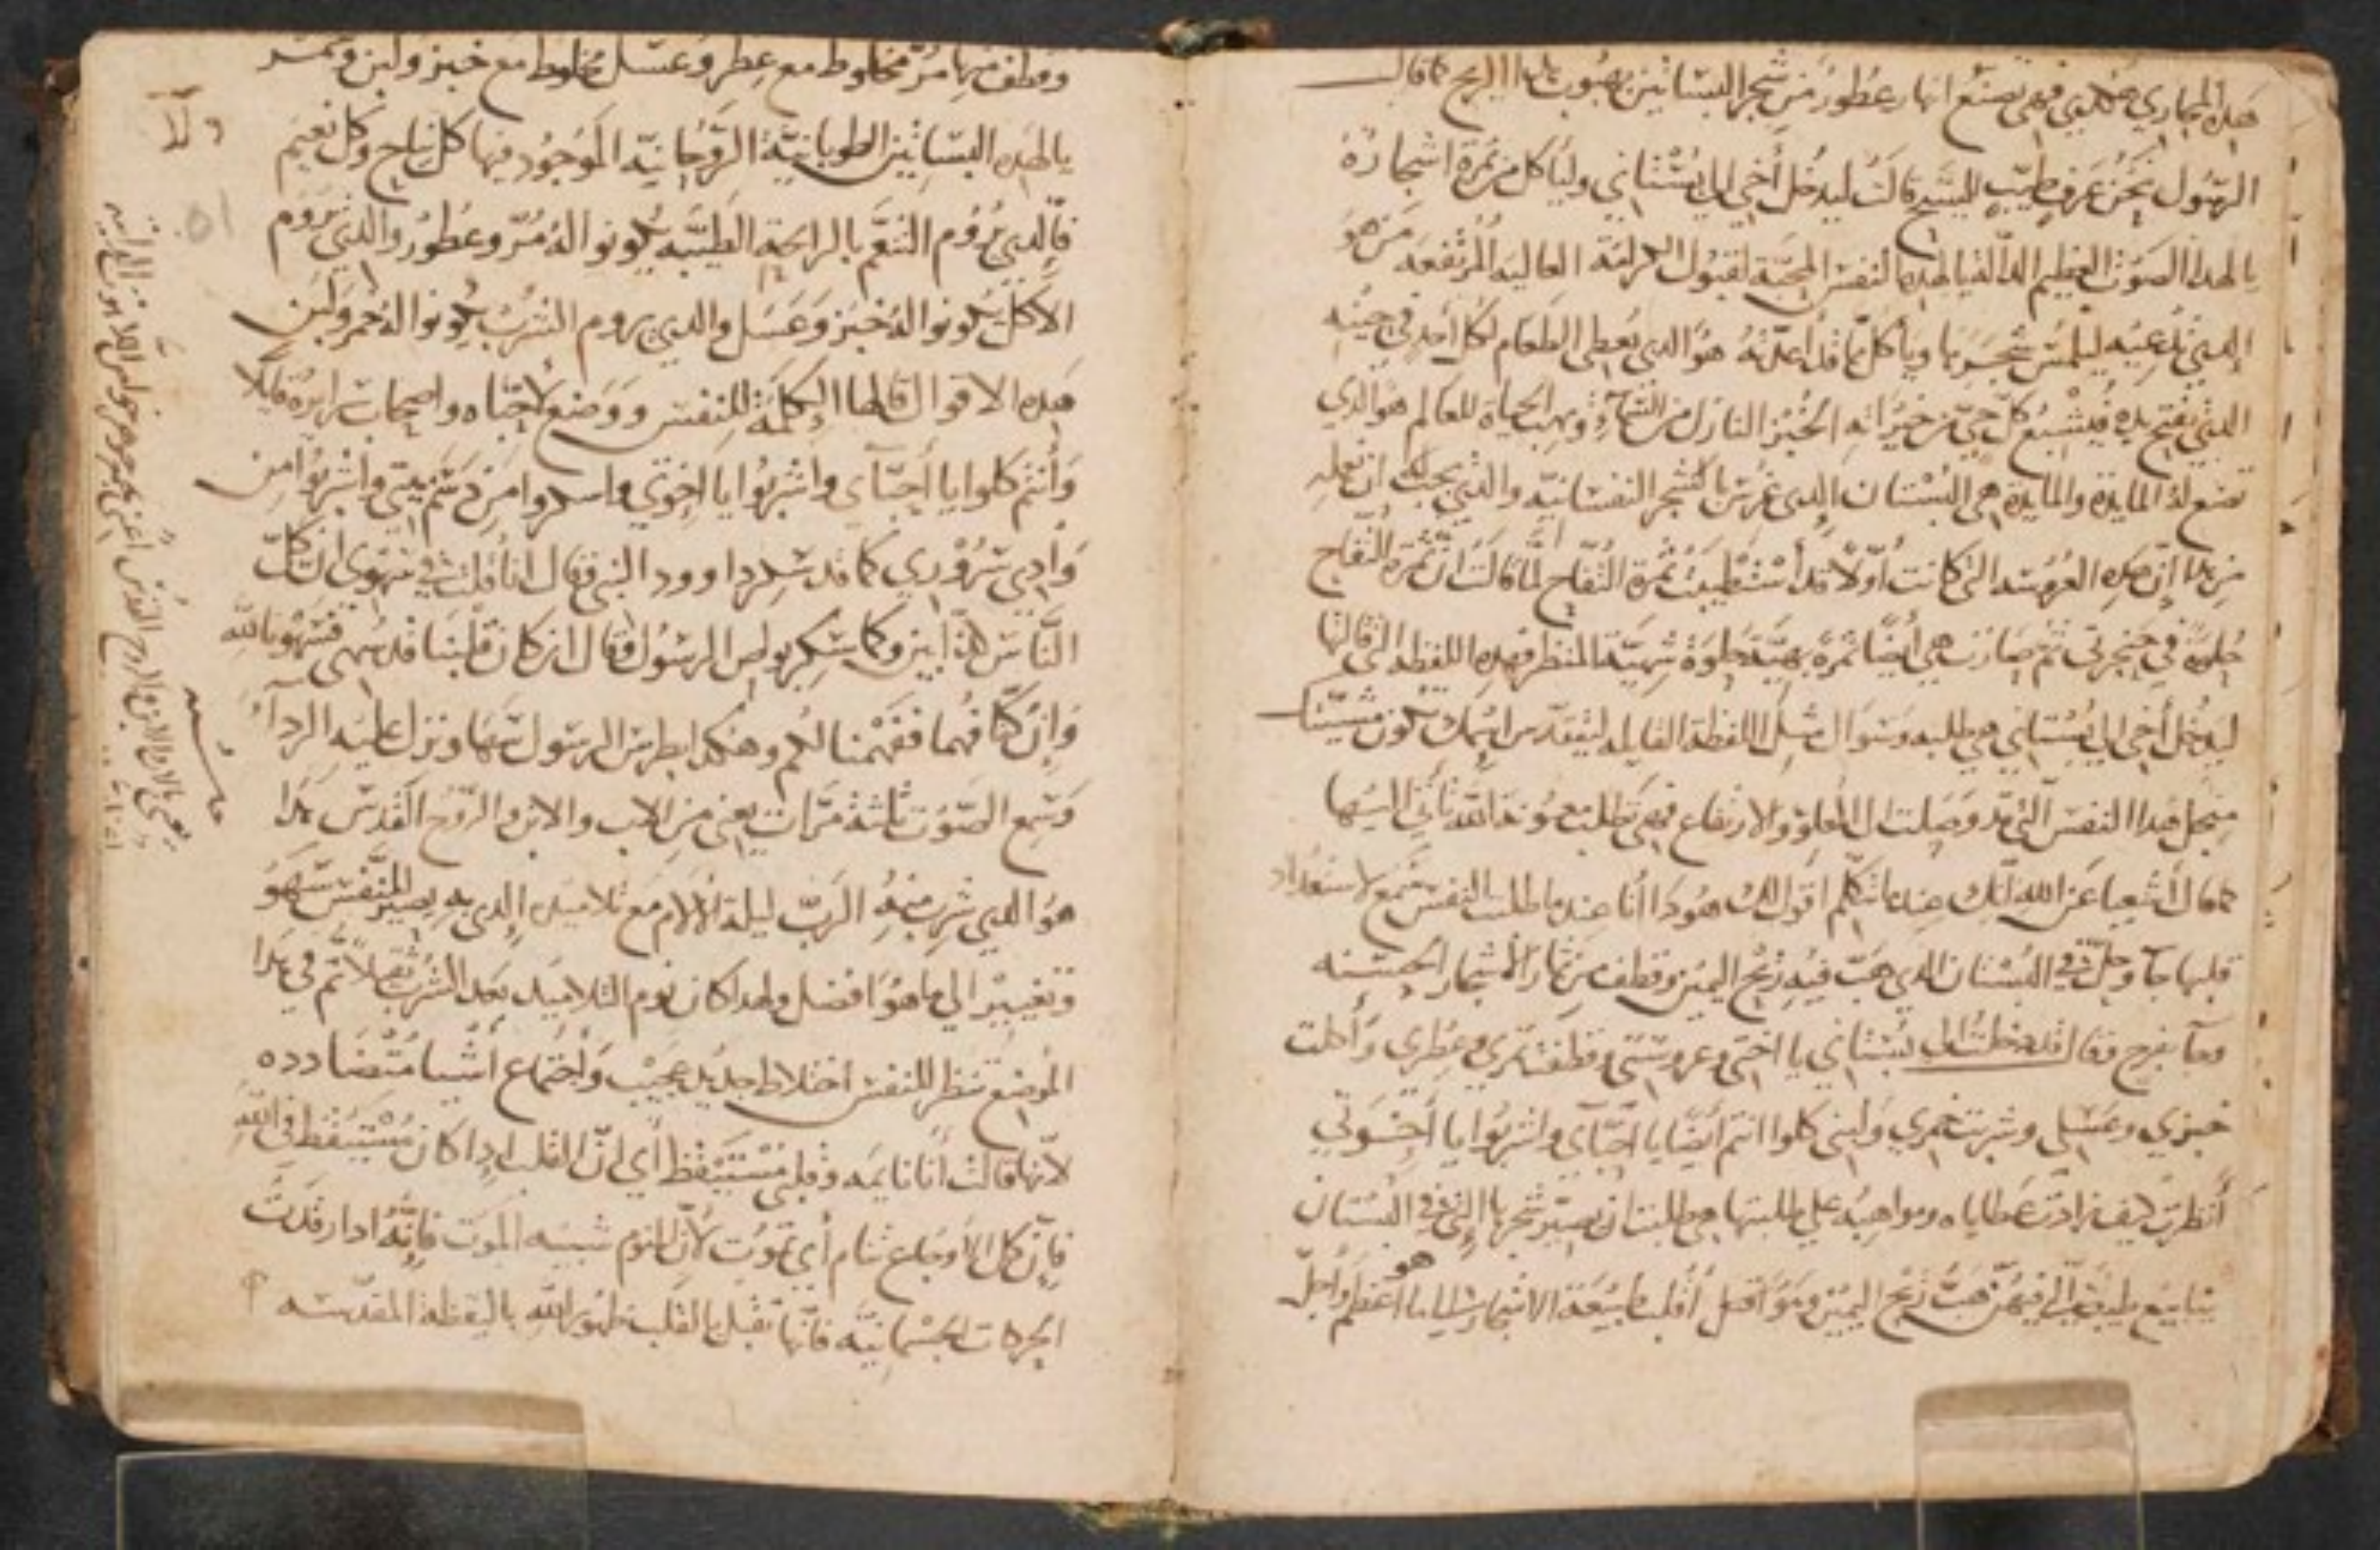 هذه المجاري هكدي فهي تصنع انهار عطور من شجر البساتين بهبوب هذا الريح كما قال
الرسول نحن عرف طيب للمسيح قالت ليدخل أخي الي بستاني وليأكل من ثمرة اشجاره
يا لهدا الصوت العظيم يا لهده النفس المحبة لقبول الكرامة العاليه المرتفعه من هو
الدي تدعيه ليلمس شجرتها ويأكل مما قد أعدته هو الدي يعطي الطعام لكل أحد في حينه
الدي يفتح يده فيشبع كل حي من خيراته الخبز النازل من السماء ويهب الحياة للعالم هو الدي
تصنع له المايدة والمايدة هي البستان الدي غرس بالشجر النفسانيه والدي يجب أن نعلمه
من هدا إن هده العروسه التي كانت أولاً قد أستطيبت ثمرة التفاح لما قالت ان ثمرة التفاح
حلوة في حنجرتي ثم صارت هي أيضًا ثمرة بهية حلوة شهية المنظر فهده اللفظه التي قالتها
ليدخل أخي الي بستاني هي طلبه وسوال مثل اللفظة القايله ليتقدس اسمك تكون مشيتك
من اجل هدا النفس التي قد وصلت الي العلو والارتفاع فهي تطلب معونة الله تأتي اليها
كما قال أشعيا عن الله انك عند ما تتكلم اقول لك هودا أنا عند ما طلبت النفس سمع لاستعداد
قلبها جآ وحل في البستان الدي هب فيه ريح اليمن وقطف من ثمار الأشجار الحسنه
وجآ بفرح وقال قد دخلت الي بستاني يا اختي وعروستي وقطفت مُري وعطري وأكلت
خبزي وعسلي وشربت خمري ولبني كلوا انتم ايضًا يا احبآي واشربوا يا أخوتي
أنظرت كيف زادت عطاياه ومواهبه علي طلبتها هي طلبت ان يصير شجرها الدي في البستان
ينابيع طيب فيهن هبت ريح اليمن وهو اقبل أقلب طبيعة الاشجار الي ما هو اعظم وأجل
وقطف منها مرّ مخلوط مع عطر وعسل مخلوط مع خبز ولبن وخمر
يا لهده البساتين الطوبانية الروحانيه الموجود فيها كل نياح وكل نعيم
فالدي يروم التنعم بالرايحة الطيبه يكونوا له مُرّ وعطور والدي يروم
الأكل يكونوا له خبز وعسل والدي يروم الشرب يكونوا له خمر ولبن
هده الاقوال قالها الكلمة للنفس ووضع لأحبآه واصحابه امره قايلا
وأنتم كلوا يا أحبآي واشربوا يا اخوتي واسكروا من دسم بيتي واشربوا من
وادي سروري كما قد سكر داوود النبي فقال انا قلت في سهوي ان كل
الناس كذابين وكما سكر بولس الرسول فقال ان كان قلبنا قد سهي فسهونا لله
وان كنا فهما ففهمنا لكم وهكدا بطرس الرسول سها ونزل عليه الردآ
وسمع الصوت ثلثة مرات يعني من الاب والابن والروح القدس هدا
هو الدي شرب منه الرب ليلة الالام مع تلاميده الدي به يصير للنفس سهو
وتغيير الي ما هو افضل ولهدا كان نوم التلاميد بعد الشرب ثقيلاً ثم في هدا
الموضع تنظر للنفس اختلاط جديد عجيب واجتماع أشيا متضادده
لأنها قالت أنا نايمه وقلبي مستيقظ أي انّ القلب ادا كان مستيقظ في الله
فإن كل الأوجاع تنام أي تموت لأن النوم شبيه الموت فانه ادا رقدت
الحركات الجسمانيه فانها تقبل بالقلب ظهور الله باليقظة المقدسه
51